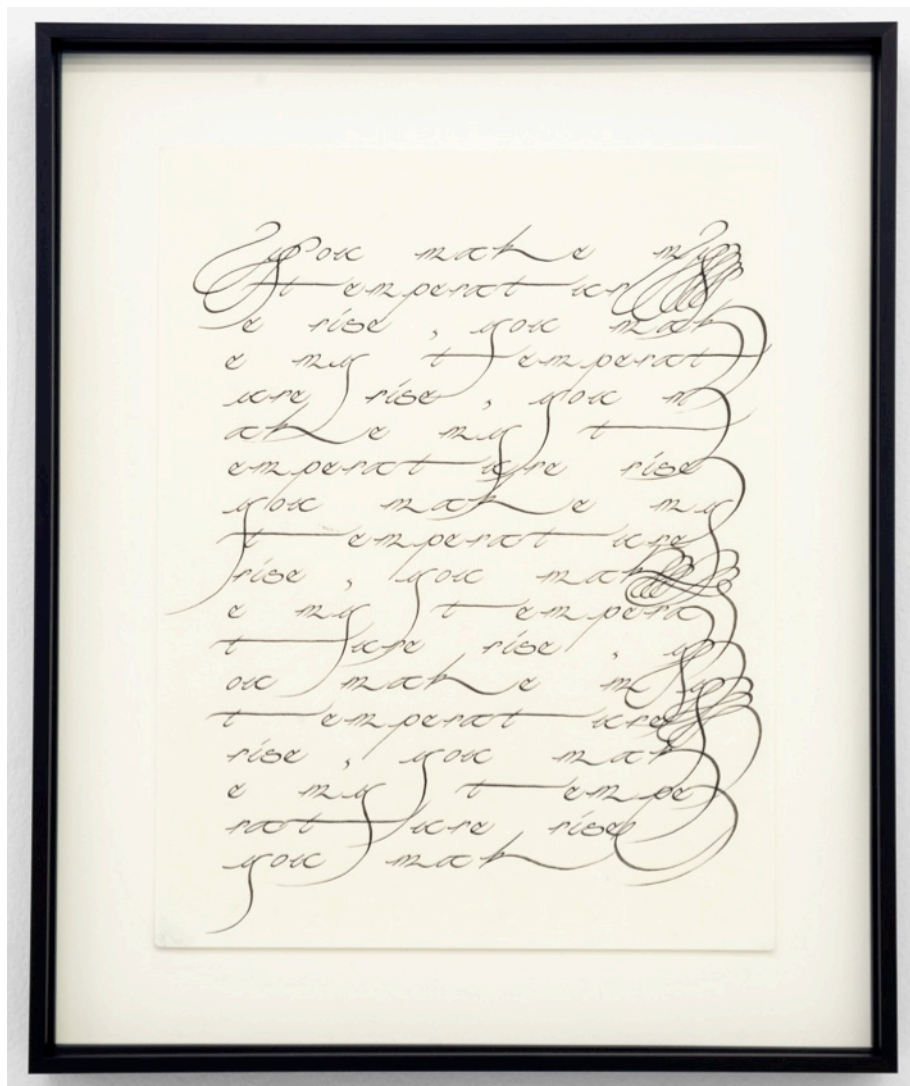 you mak e my
t emperat ur
e rise , you mak
e my t emperat
ure rise , you m
ak e my t
emperat ure rise
you mak e my
t emperat ure
rise , you mak
e my t empera
t ure rise , y
ou mak e my
t emperat ure
rise , you mak
e my t empe
rat ure rise
you mak